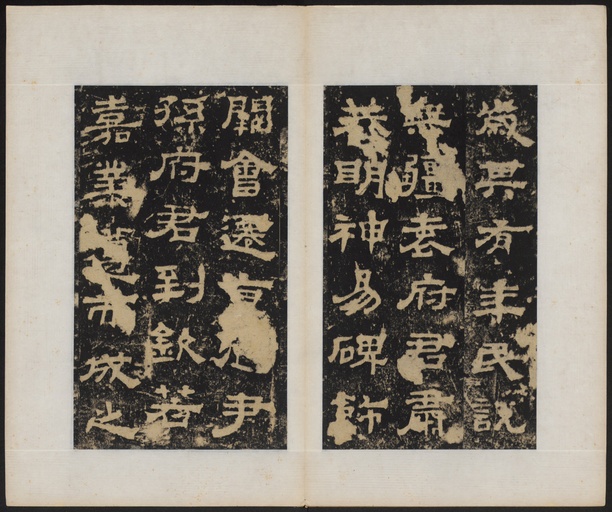 歲其有年民說
無疆袁府君肅
恭明神易碑飾
闕會遷京兆尹
孫府君到欽若
嘉業遵而成之